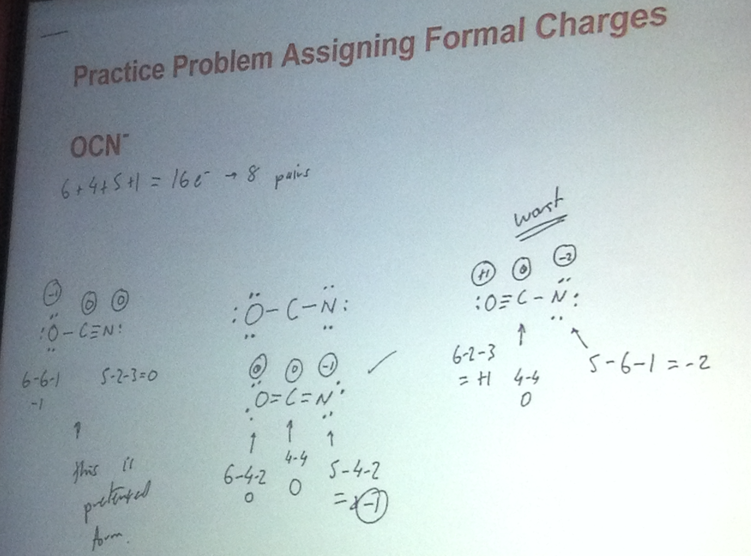 Practice Problem Assigning Formal Charges
OCN⁻
6+4+5+1 = 16e⁻ → 8 pairs
-1 0 0
:Ö-C≡N:
6-6-1 5-2-3=0
-1
↑
this is
preferred
form.
:Ö-C-N̈:
0 0 -1 ✓
.Ö=C=N̈:
↑ ↑ ↑
6-4-2 4-4 5-4-2
0 0 = -1
worst
+1 0 -2
:O≡C-N̈:
6-2-3 ↑
= +1 4-4 5-6-1 = -2
0